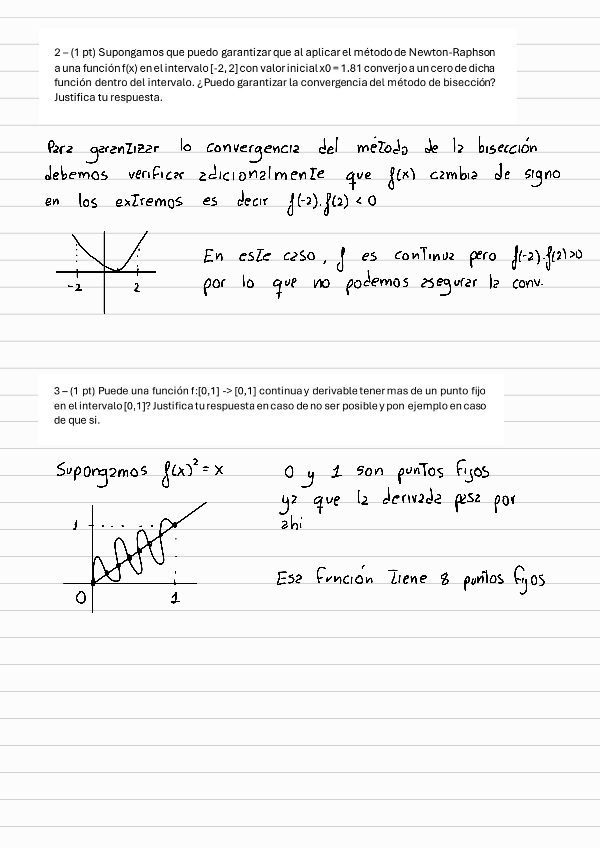 2 – (1 pt) Supongamos que puedo garantizar que al aplicar el método de Newton-Raphson
a una función f(x) en el intervalo [-2, 2] con valor inicial x0 = 1.81 converjo a un cero de dicha
función dentro del intervalo. ¿Puedo garantizar la convergencia del método de bisección?
Justifica tu respuesta.
Para garantizar la convergencia del método de la bisección
debemos verificar adicionalmente que f(x) cambia de signo
en los extremos es decir f(-2).f(2) < 0
En este caso, f es continua pero f(-2).f(2)>0
por lo que no podemos asegurar la conv.
-2 2
3 – (1 pt) Puede una función f:[0,1] -> [0,1] continua y derivable tener mas de un punto fijo
en el intervalo [0,1]? Justifica tu respuesta en caso de no ser posible y pon ejemplo en caso
de que si.
Supongamos f(x)² = x
0 y 1 son puntos fijos
ya que la derivada pasa por
ahi
1
0 1
Esa función tiene 8 puntos fijos